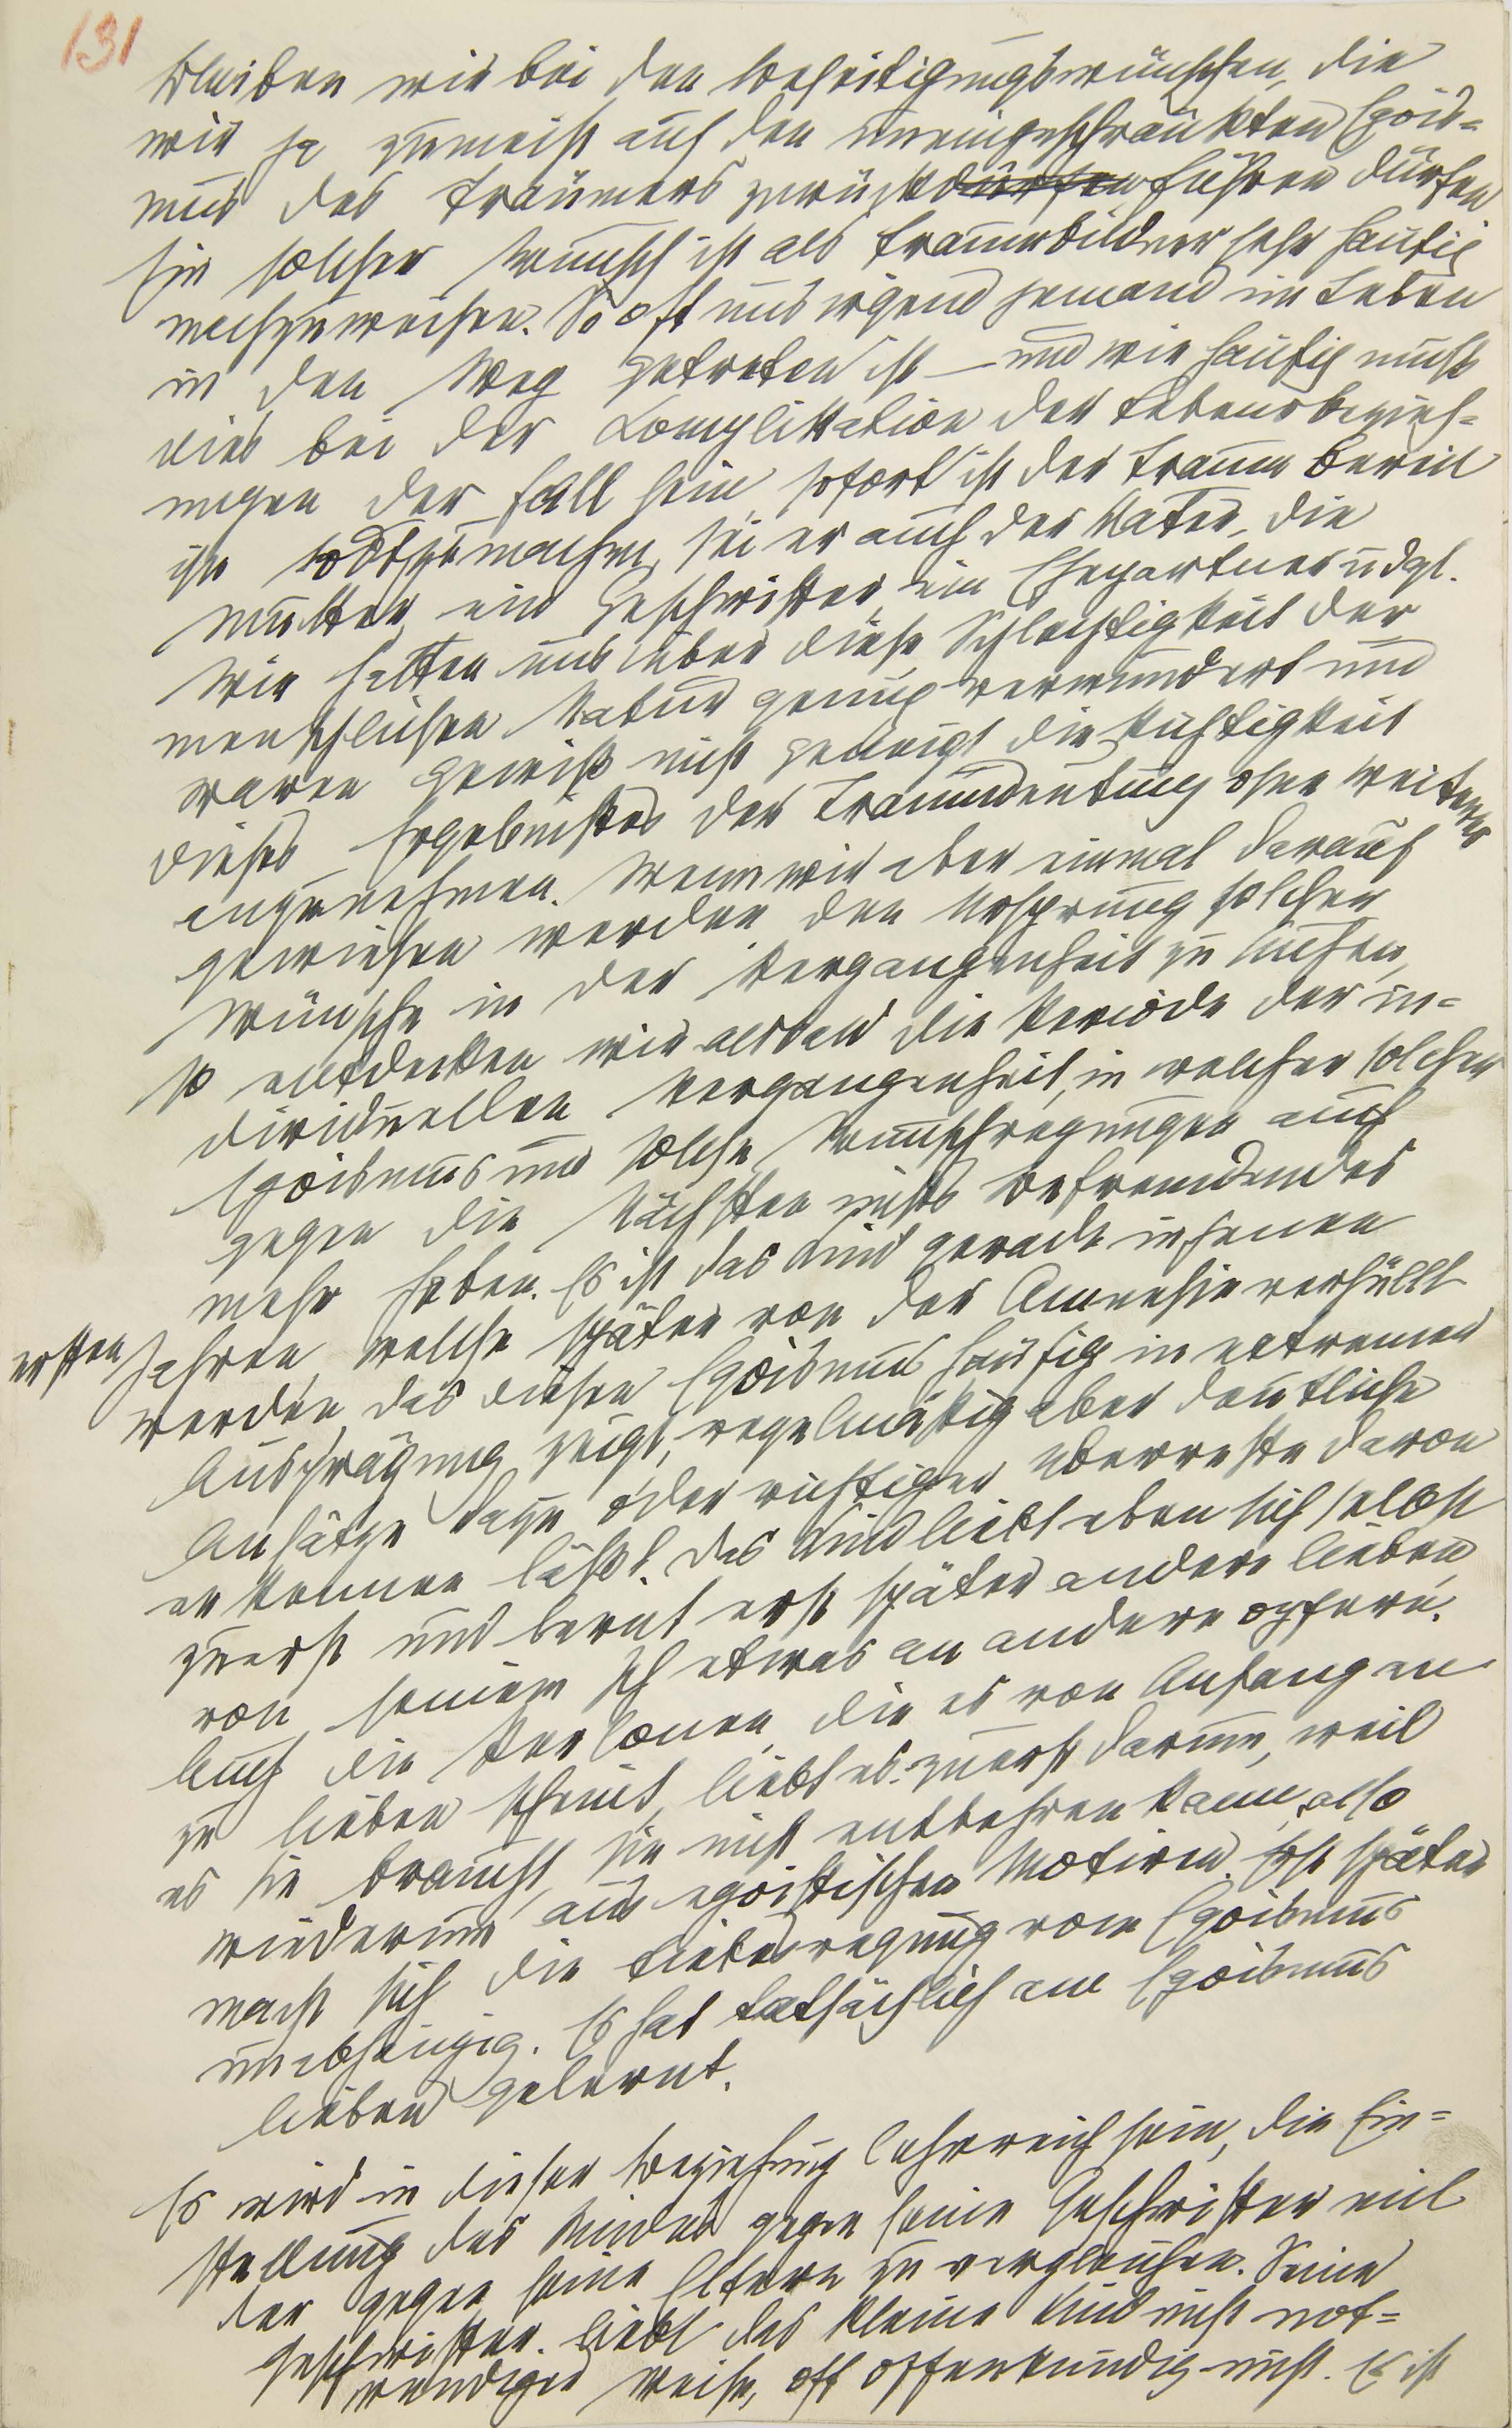 131
bleiben wir bei den Beseitigungswünschen, die
wir ja zumeist auf den uneingeschränkten Egois=
mus des Träumers zurückdürfen führen dürfen
Ein solcher Wunsch ist als Traumbildner sehr häufig
nachzuweisen. So oft uns irgend jemand im Leben
in den Weg getreten ist – und wie häufig muß
dies bei der Komplikation der Lebensbezieh=
ungen der Fall sein, sofort ist der Traum bereit
ihn todtzumachen, sei er auch der Vater, die
Mutter, ein Geschwister, ein Ehepartner u dgl.
Wir hatten uns über diese Schlechtigkeit der
menschlichen Natur genug verwundert und
waren gewiß nicht geneigt die Richtigkeit
dieses Ergebnisses der Traumdeutung ohne weiteres
anzunehmen. Wenn wir aber einmal darauf
gewiesen werden den Ursprung solcher
Wünsche in der Vergangenheit zu suchen,
so entdecken wir alsbald die Periode der in=
dividuellen Vergangenheit, in welcher solcher
Egoismus und solche Wunschregungen auch
gegen die Nächsten nichts Befremdendes
mehr haben. Es ist das Kind gerade in jenen
ersten Jahren, welche später von der Amnesie verhüllt
werden, das diesen Egoismus häufig in extremer
Ausprägung zeigt, regelmäßig aber deutliche
Ansätze dazu oder richtiger Überreste davon
erkennen läßt. Das Kind liebt eben sich selbst
zuerst und lernt erst später andere lieben,
von seinem Ich etwas an andere opfern.
Auch die Personen, die es von Anfang an
zu lieben scheint, liebt es zuerst darum, weil
es sie braucht, sie nicht entbehren kann, also
wiederum aus egoistischen Motiven. Erst später
macht sich die Liebesregung vom Egoismus
unabhängig. Es hat tatsächlich am Egoismus
lieben gelernt.
Es wird in dieser Beziehung lehrreich sein, die Ein=
stellung des Kindes gegen seine Geschwister mit
der gegen seine Eltern zu vergleichen. Seine
Geschwister liebt das kleine Kind nicht not=
wendiger Weise, oft offenkundig nicht. Es ist